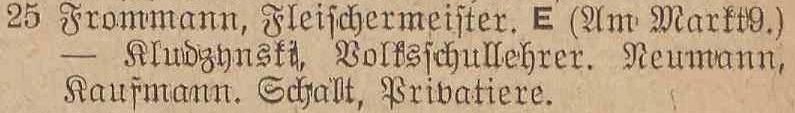 25 Frommann, Fleischermeister. E (Am Markt 9.)
— Kludzynski, Volksschullehrer. Neumann,
Kaufmann. Schalt, Privatiere.